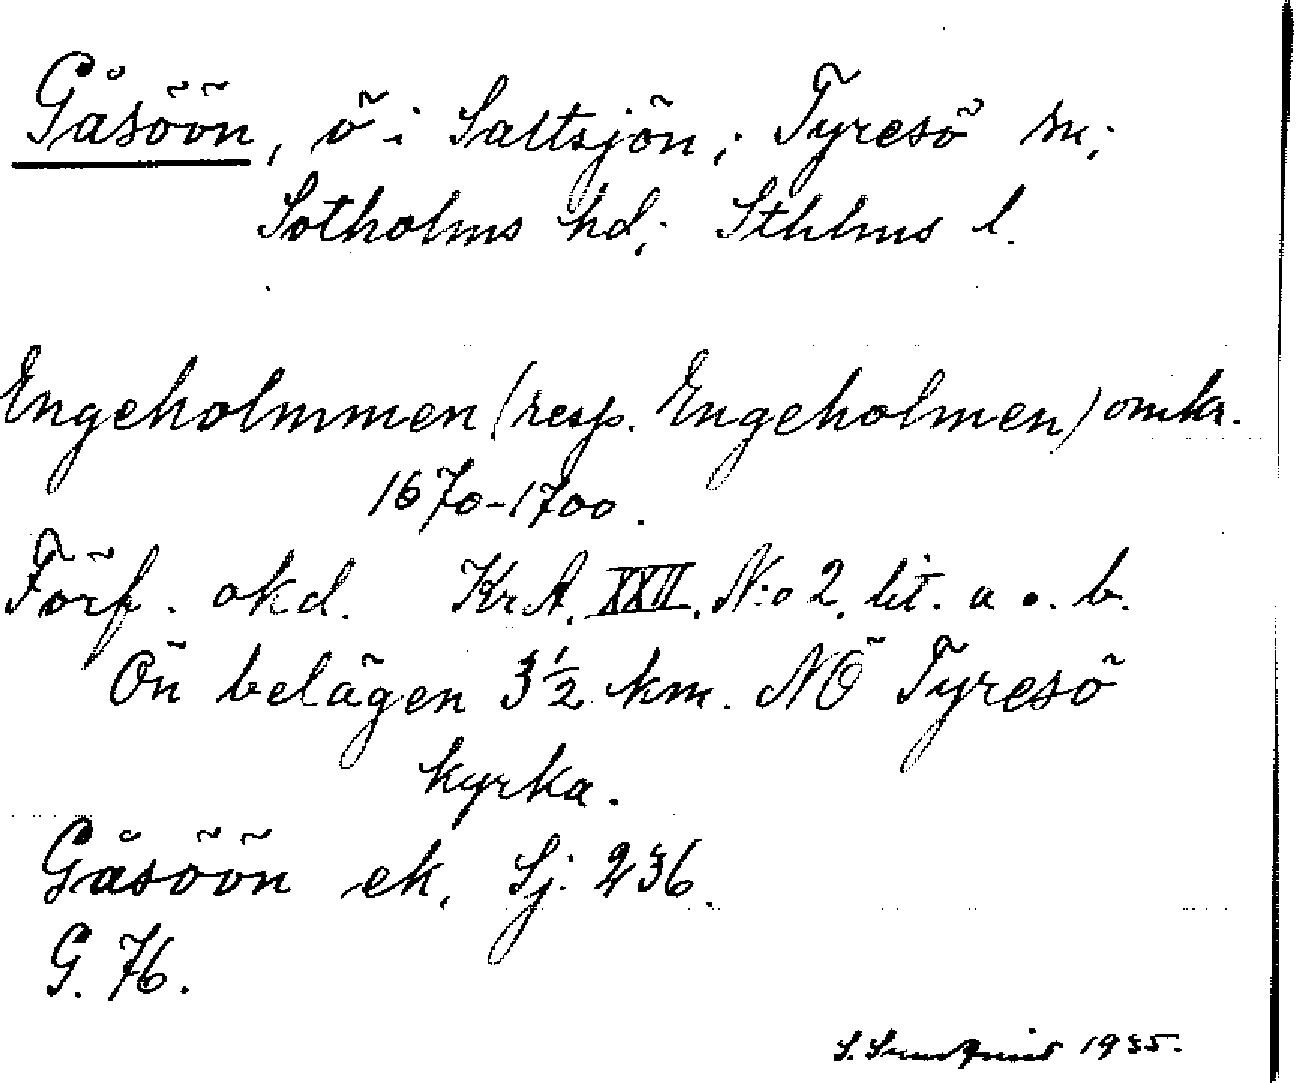 Gåsöön, ö i Saltsjön; Tyresö sn;
Sotholms hd; Sthlms l.
Engeholmmen (resp. Engeholmen) omkr.
1670-1700.
Förf. okd. KrA. XXII. N:o 2. lit. a o. b.
Ön belägen 3 1/2 km. NÖ Tyresö
kyrka.
Gåsöön ek. Sj: 236.
G. 76.
S. 1935.